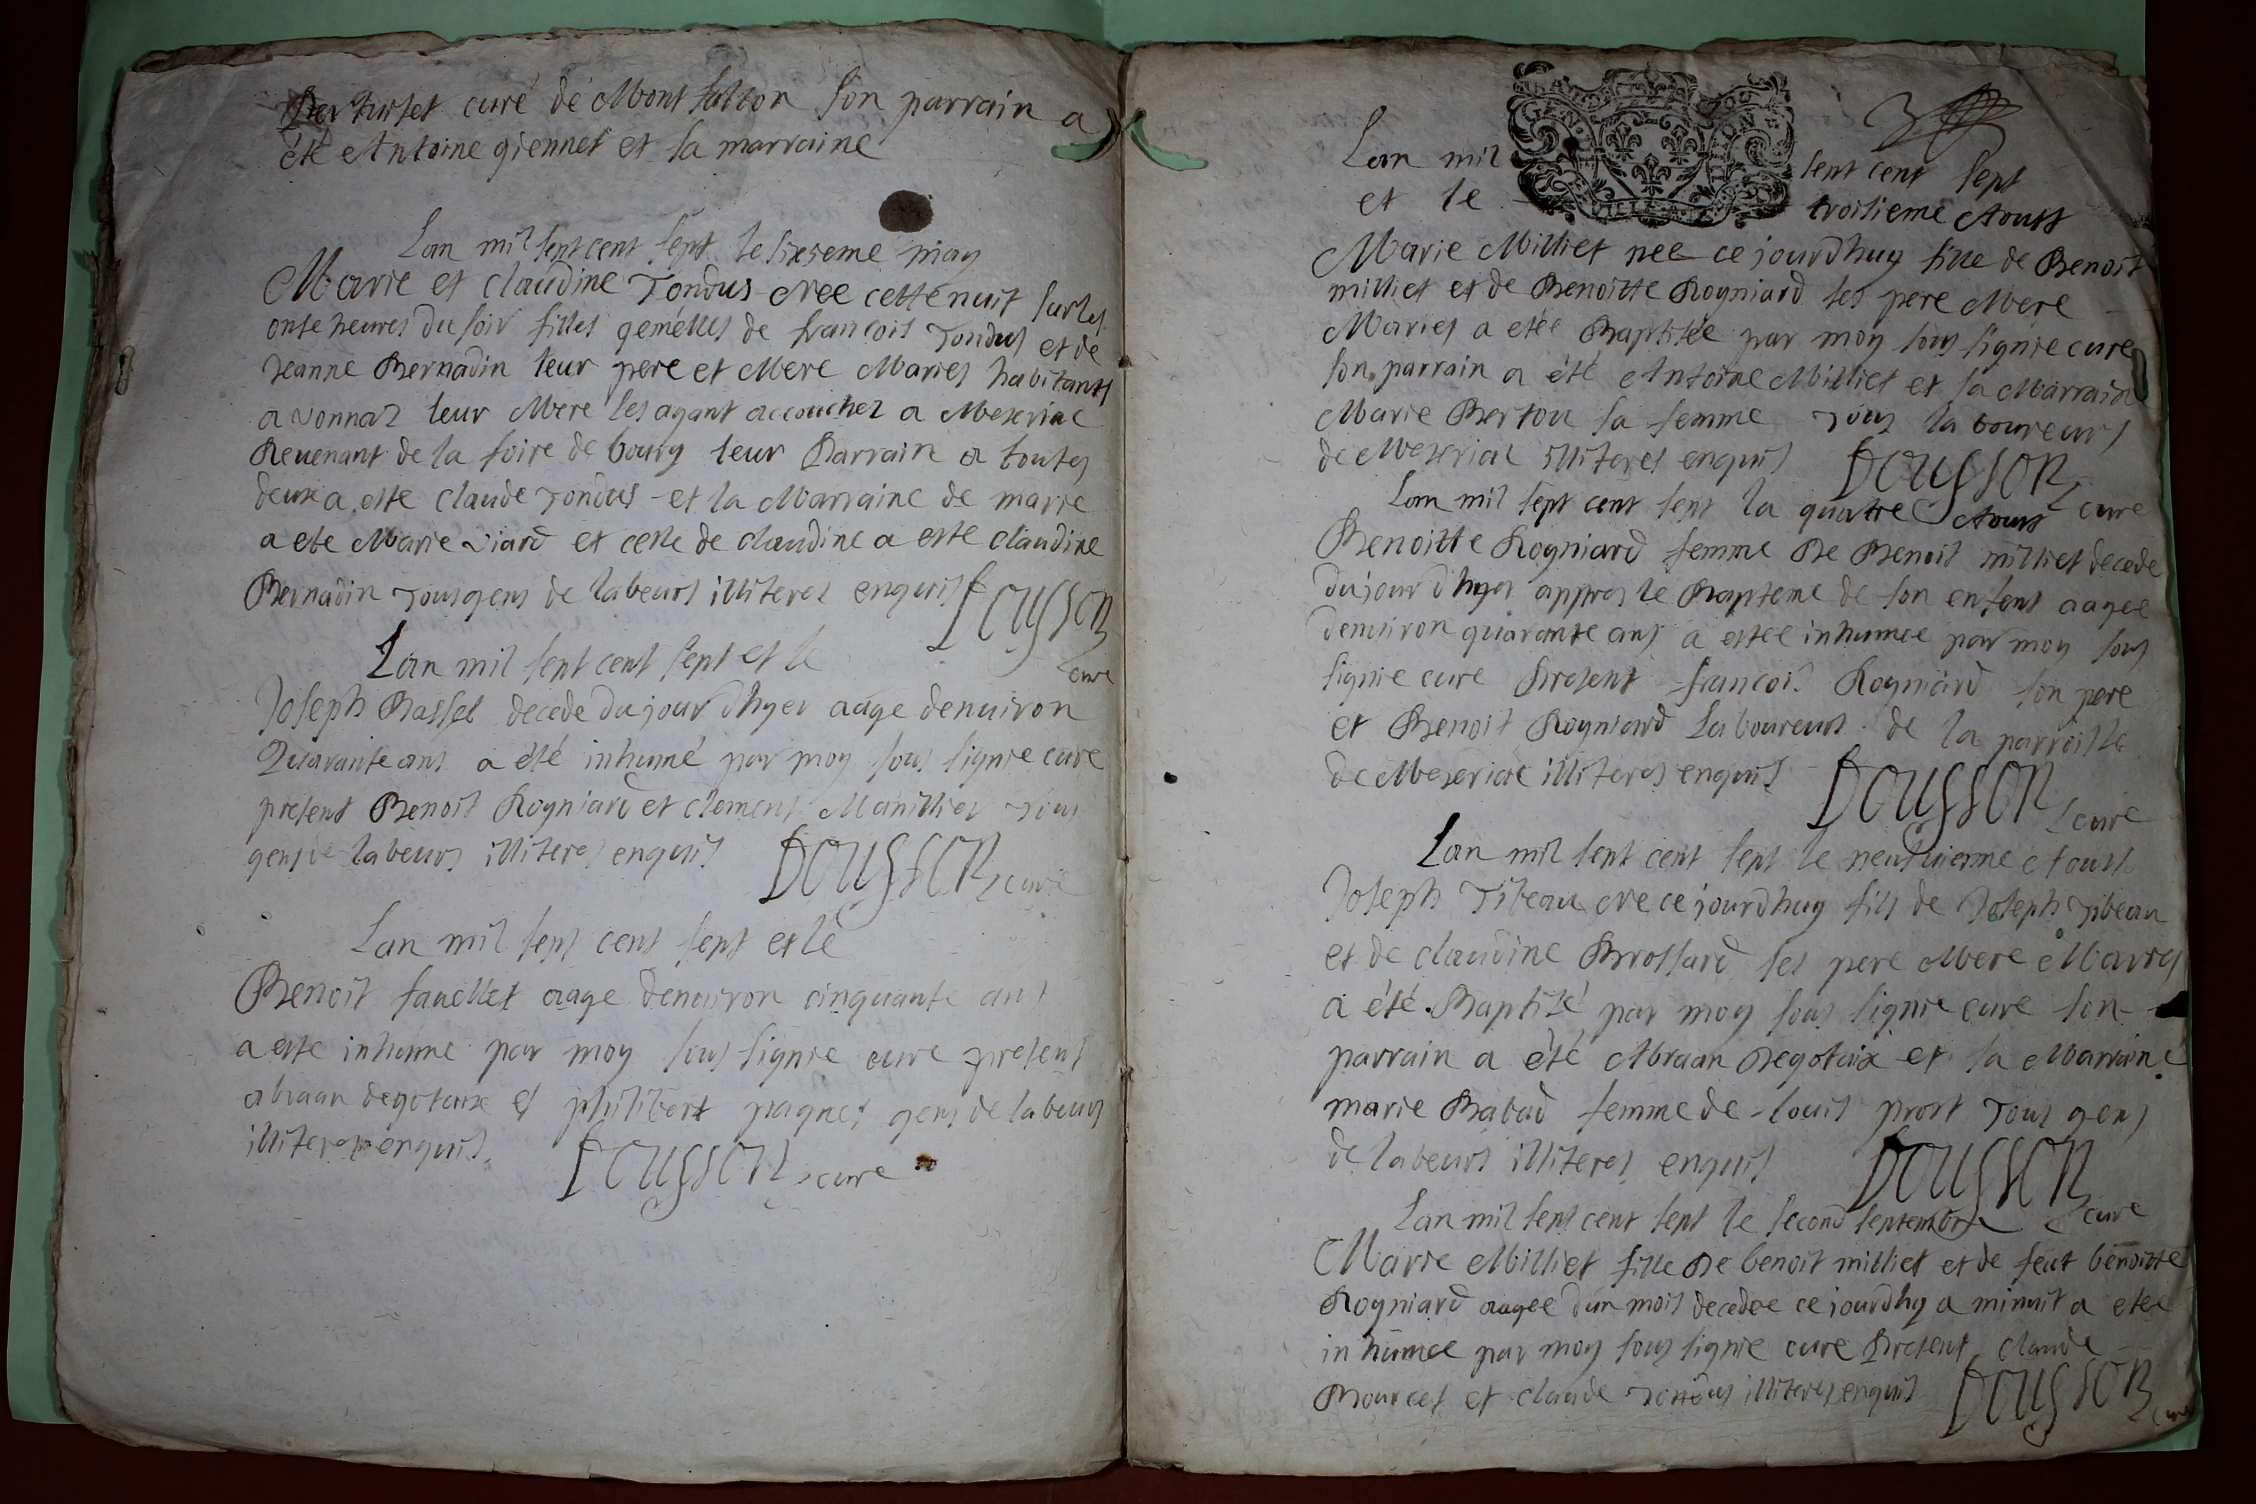 Perturset curé de Mont falcon son parrain a
été Antoine giennet et sa marraine
Lan mil sept cent sept le sixseme may
Marie et claudine Tondus Nee cette nuit sur les
onse heures du soir filles gemelles de francois Tondus et de
Jeanne Bernadin leur pere et Mere Maries habitants
a vonnaz leur Mere les ayant accouchez a Meseriac
Revenant de la foire de bourg leur Parrain a toutes
deux a este claude Tondus et la Marraine de marie
a ete Marie viard et celle de claudine a este claudine
Bernadin Tous gens de labeurs illiteres enquis Dousson
cure
Lan mil sept cent sept et le
Joseph Bassel decede du jour d'hyer aage denuiron
Quarante ans a été inhumé par moy sous signie cure
present Benoit Rogniard et clement Manillier Tous
gens de labeurs illiteres enquis Dousson cure
Lan mil sept cent sept et le
Benoit fauellet aage denuiron cinquante ans
a este inhume par moy sous signie cure present
abraan degotaix et philibert pagnet gens de labeurs
illiteres enquis Dousson cure
Lan mil sept cent sept
et le troisieme Aoust
Marie Milliet nee ce jourdhuy fille de Benoit
milliet et de Benoitte Rogniard ses pere Mere
Maries a etée Baptisée par moy sous signie cure
son parrain a été Antoine Milliet et sa Marraine
Marie Bertou sa femme Tous laboureurs
de Meseriac illiteres enquis Dousson
cure
Lan mil sept cent sept la quatre Aoust
Benoitte Rogniard femme De Benoit milliet decede
du jour d'hyer appres le Bapteme de son enfent aagee
denuiron quarante ans a estee inhumee par moy sous
signie cure Present francois Rogniard son pere
et Benoit Rogniard Laboureurs de la parroisse
de Meseriac illiteres enquis Dousson
cure
Lan mil sept cent sept le neufuieme Aoust
Joseph Tibeau Ne ce jourdhuy fils de Joseph Tibeau
et de claudine Brossard ses pere Mere Maries
a été Baptisé par moy sous signie cure son
parrain a été Abraan Degotaix et sa Marraine
marie Babad femme de louis prost Tous gens
de labeurs illiteres enquis Dousson
cure
Lan mil sept cent sept le second septembre
Marie Milliet fille De benoit milliet et de feut benoitte
Rogniard aagee dun mois decedee ce jourdhy a minuit a etee
inhumee par moy sous signie cure Present claude
Bourcet et claude Tondus illiteres enquis Dousson
cure